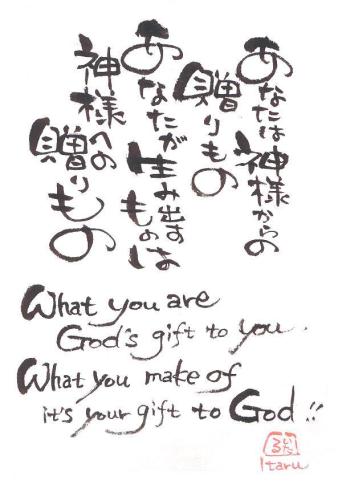 あなたは神様からの
贈りもの
あなたが生み出すものは
神様への
贈りもの
What you are
God's gift to you.
What you make of
it's your gift to God !!
いたる
Itaru